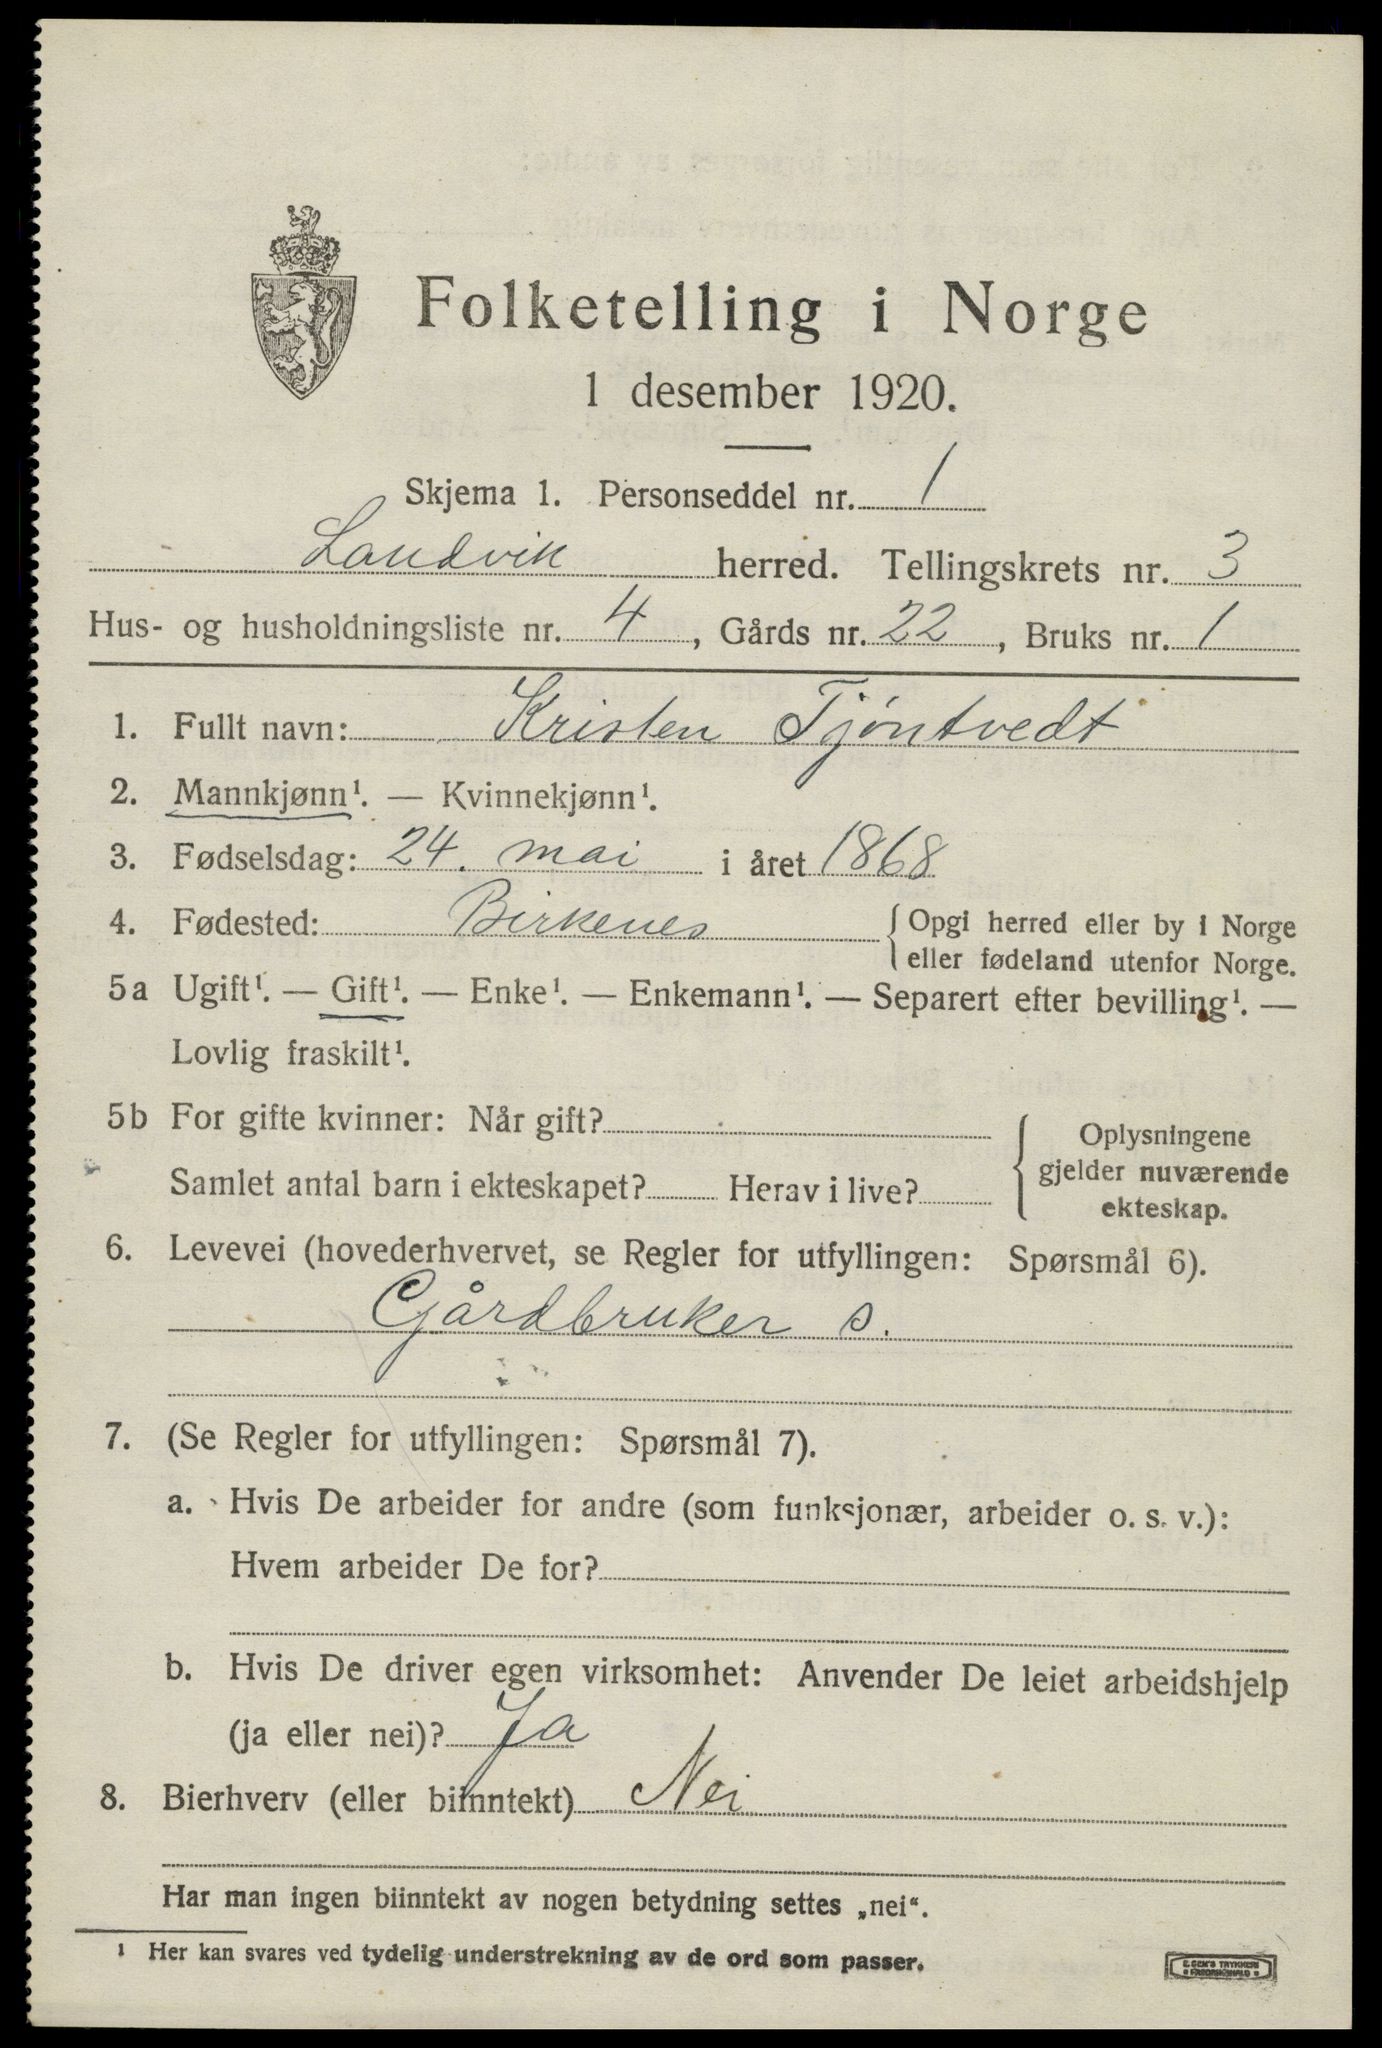 Folketelling i Norge
1 desember 1920.
Skjema 1. Personseddel nr. 1
Landvik herred. Tellingskrets nr. 3
Hus- og husholdningsliste nr. 4, Gårds nr. 22, Bruks nr. 1
1. Fullt navn: Kristen Tjöntvedt
2. Mannkjønn¹. — Kvinnekjønn¹.
3. Fødselsdag: 24. mai i året 1868
4. Fødested: Birkenes { Opgi herred eller by i Norge
eller fødeland utenfor Norge.
5a Ugift¹. — Gift¹. — Enke¹. — Enkemann¹. — Separert efter bevilling¹. —
Lovlig fraskilt¹.
5b For gifte kvinner: Når gift?
Samlet antal barn i ekteskapet? Herav i live?
{ Oplysningene
gjelder nuværende
ekteskap.
6. Levevei (hovederhvervet, se Regler for utfyllingen: Spørsmål 6).
Gårdbruker s.
7. (Se Regler for utfyllingen: Spørsmål 7).
a. Hvis De arbeider for andre (som funksjonær, arbeider o. s. v.):
Hvem arbeider De for?
b. Hvis De driver egen virksomhet: Anvender De leiet arbeidshjelp
(ja eller nei)? Ja
8. Bierhverv (eller biinntekt) Nei
Har man ingen biinntekt av nogen betydning settes „nei“.
¹ Her kan svares ved tydelig understrekning av de ord som passer.
E. SEM'S TRYKKERI
FREDRIKSHALD